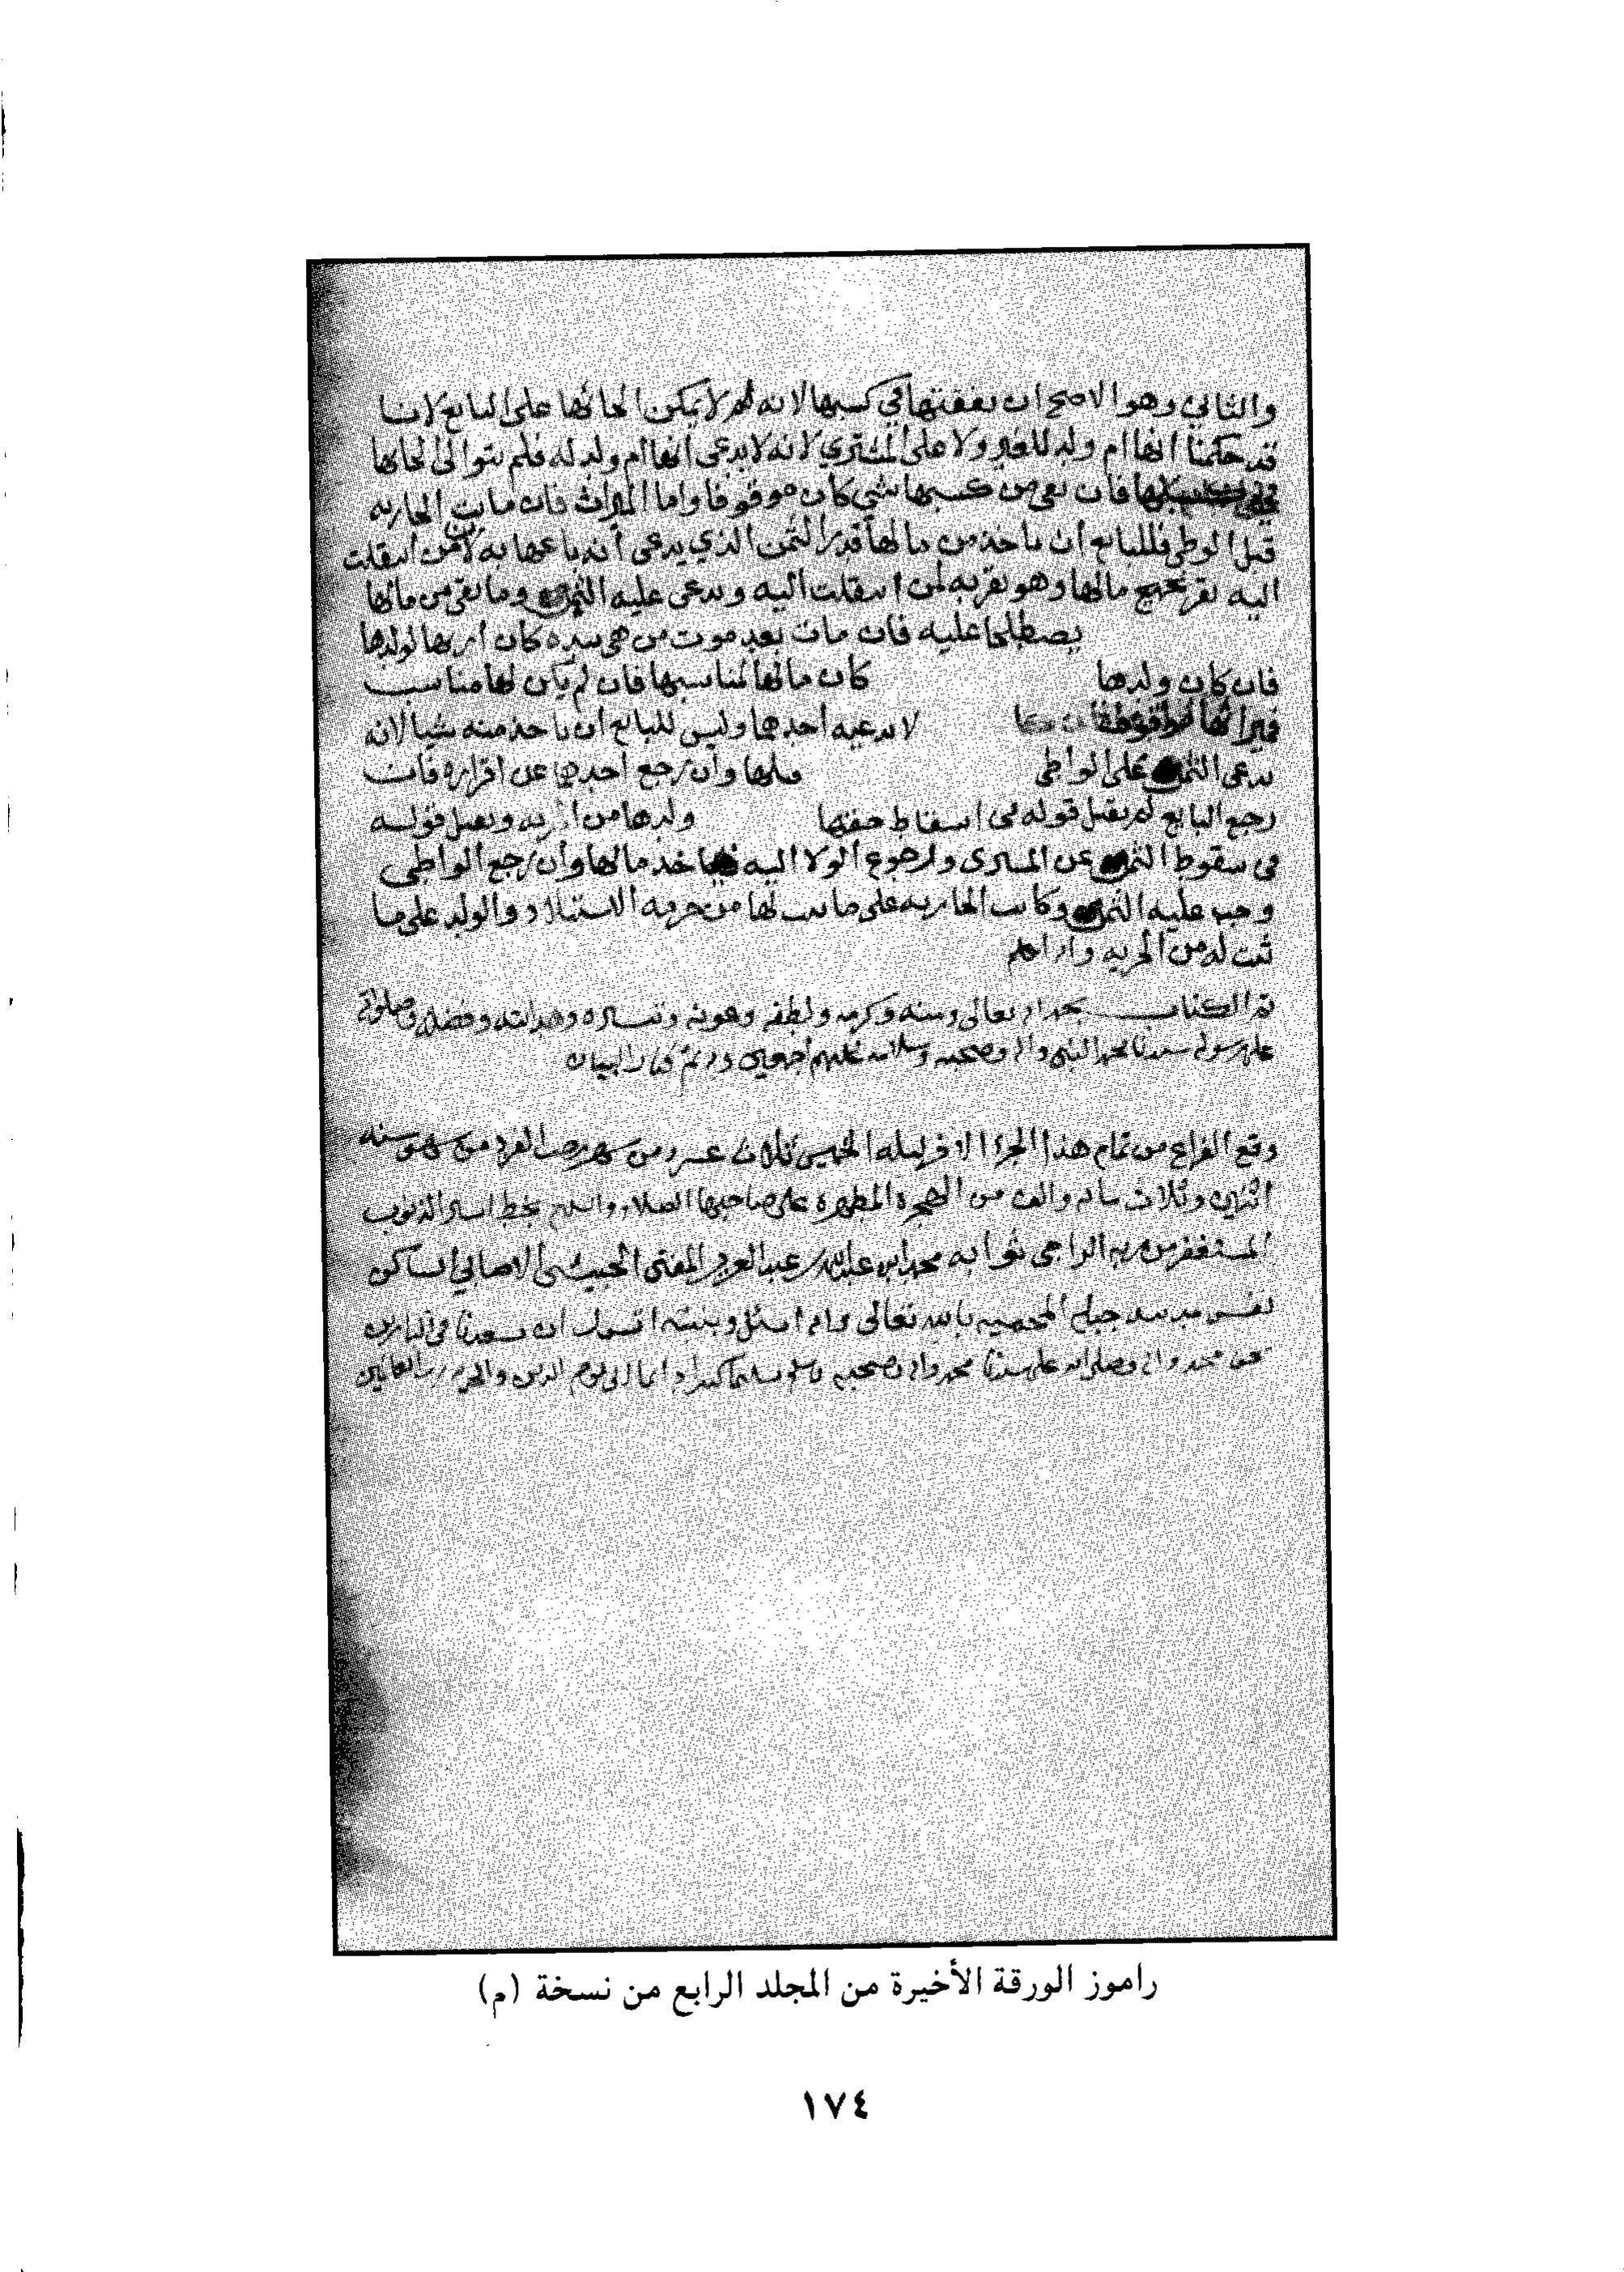 والثاني وهو الاصح ان نفقتها في كسبها لانه لا يمكن ايجابها على البايع لانا
قد حكمنا انها ام ولد للغير ولا على المشتري لانه لا يدعي انها ام ولد له فلم يبق الا ايجابها
في كسبها فان بقي من كسبها شي كان موقوفا واما الميراث فان ماتت الجاريه
قبل الوطي فللبايع ان ياخذ من مالها قدر الثمن الذي يدعي انه باعها به لان من انتقلت
اليه يقر بجميع مالها وهو يقر به لمن انتقلت اليه ويدعي عليه الثمن وما بقي من مالها
يصطلحا عليه فان مات بعد موت من هي بيده كان ارثها لولدها
فان كان ولدها كان مالها لمناسبها فان لم يكن لها مناسب
فميراثها موقوف لا يدعيه احدهما وليس للبايع ان ياخذ منه شيا لانه
يدعي الثمن على الواطي وان رجع احدهما عن اقراره فان
رجع البايع لم يقبل قوله في اسقاط حقها ولدها من ويقبل قوله
في سقوط الثمن عن المشتري ولرجوع الولا اليه مالها وان رجع الواطي
وجب عليه الثمن وكانت الجاريه على ما ثبت لها من حرمة الاستيلاد والولد على ما
ثبت له من الحريه والله اعلم
تم الكتاب بحمد الله تعالى ومنه وكرمه ولطفه وعونه وهدايته وفضله وصلواته
على رسوله سيدنا محمد النبي واله وصحبه وسلامه عليهم اجمعين كتاب البيان
وقع الفراغ من تمام هذا الجزء ليلة الخميس ثلاث عشر من شهر رجب الفرد من سنه
اثنين وثلاث والف من الهجره المطهره على صاحبها الصلاه والسلم بخط اسير الذنوب
المستغفر من ربه الراجي ثوابه محمد ابن عبدالله عبد العزيز المفتي الحبيشي الساكن
جبله المحميه بالله تعالى والله اسئل ان
بحق محمد واله وصلى الله على سيدنا محمد واله وصحبه وسلم تسليما كثيرا الى يوم الدين والحمد لله رب العالمين
راموز الورقة الأخيرة من المجلد الرابع من نسخة (م)
١٧٤